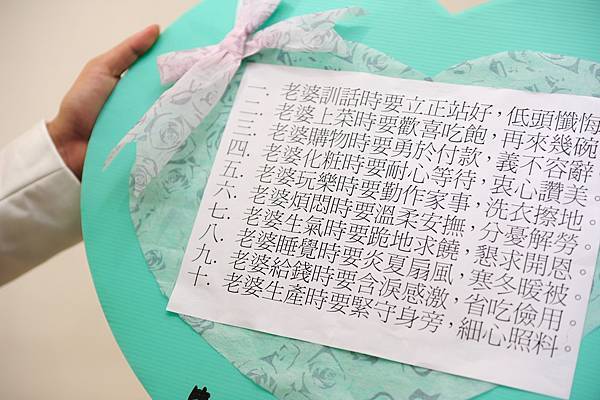 一. 老婆訓話時要立正站好，低頭懺悔
二. 老婆上菜時要歡喜吃飽，再來幾碗
三. 老婆購物時要勇於付款，義不容辭
四. 老婆化粧時要耐心等待，衷心讚美。
五. 老婆玩樂時要勤作家事，洗衣擦地。
六. 老婆煩悶時要溫柔安撫，分憂解勞。
七. 老婆生氣時要跪地求饒，懇求開恩。
八. 老婆睡覺時要炎夏扇風，寒冬暖被。
九. 老婆給錢時要含淚感激，省吃儉用。
十. 老婆生產時要緊守身旁，細心照料。